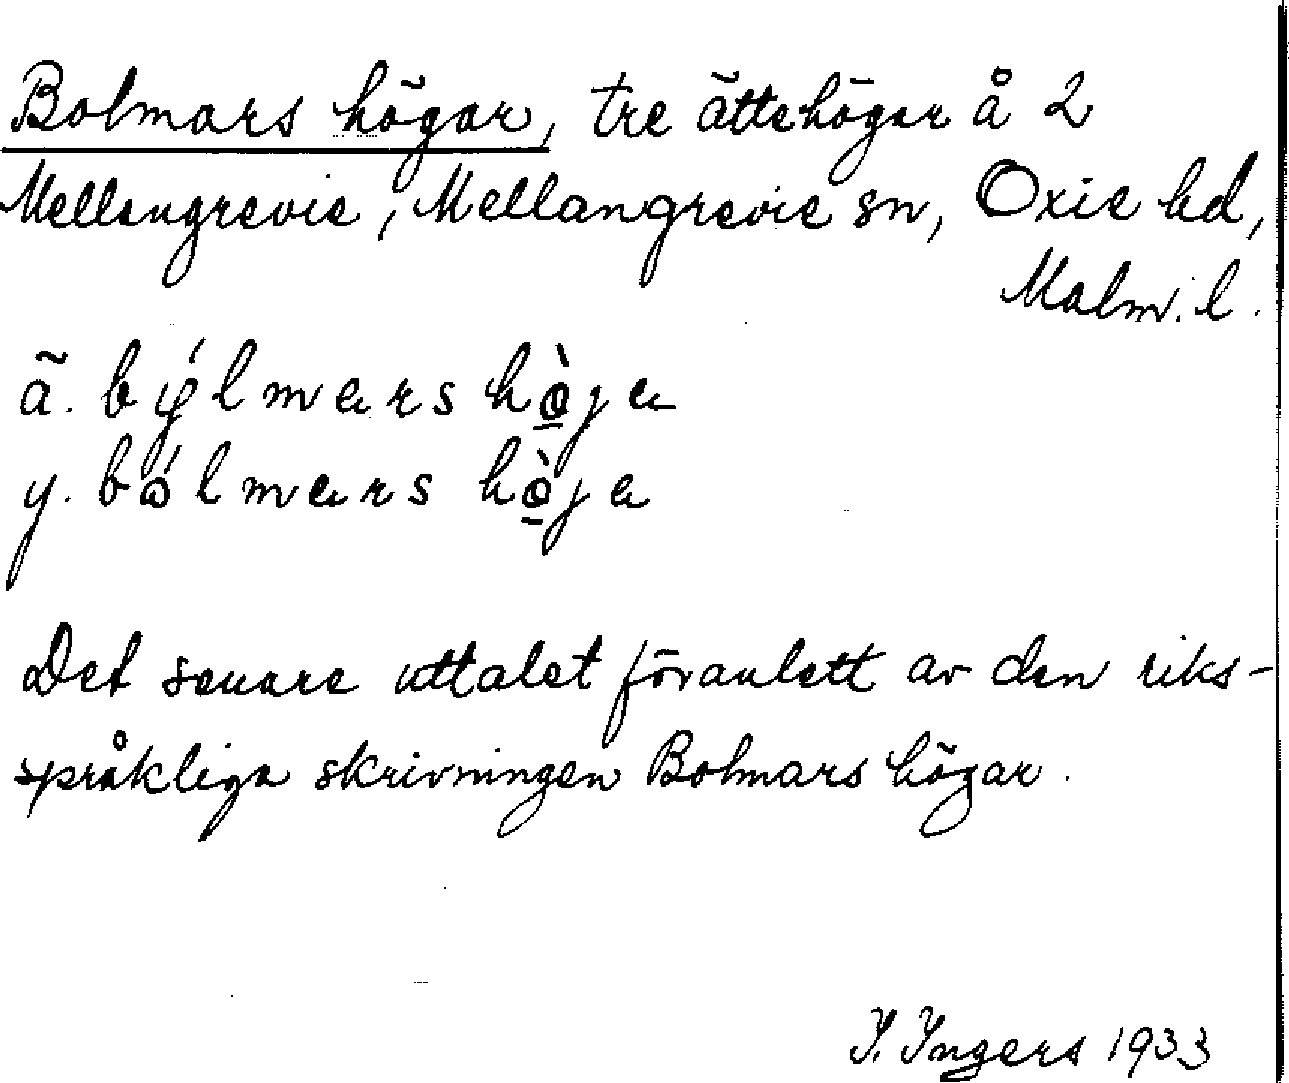 Bolmars högar, tre ättehögar å 2
Mellangrevie, Mellangrevie sn, Oxie hd,
Malm. l.
ä. bǿlmars hò̱ja
y. bólmars hò̱ja
Det senare uttalet föranlett av den riks-
språkliga skrivningen Bolmars högar.
I. Ingers 1933